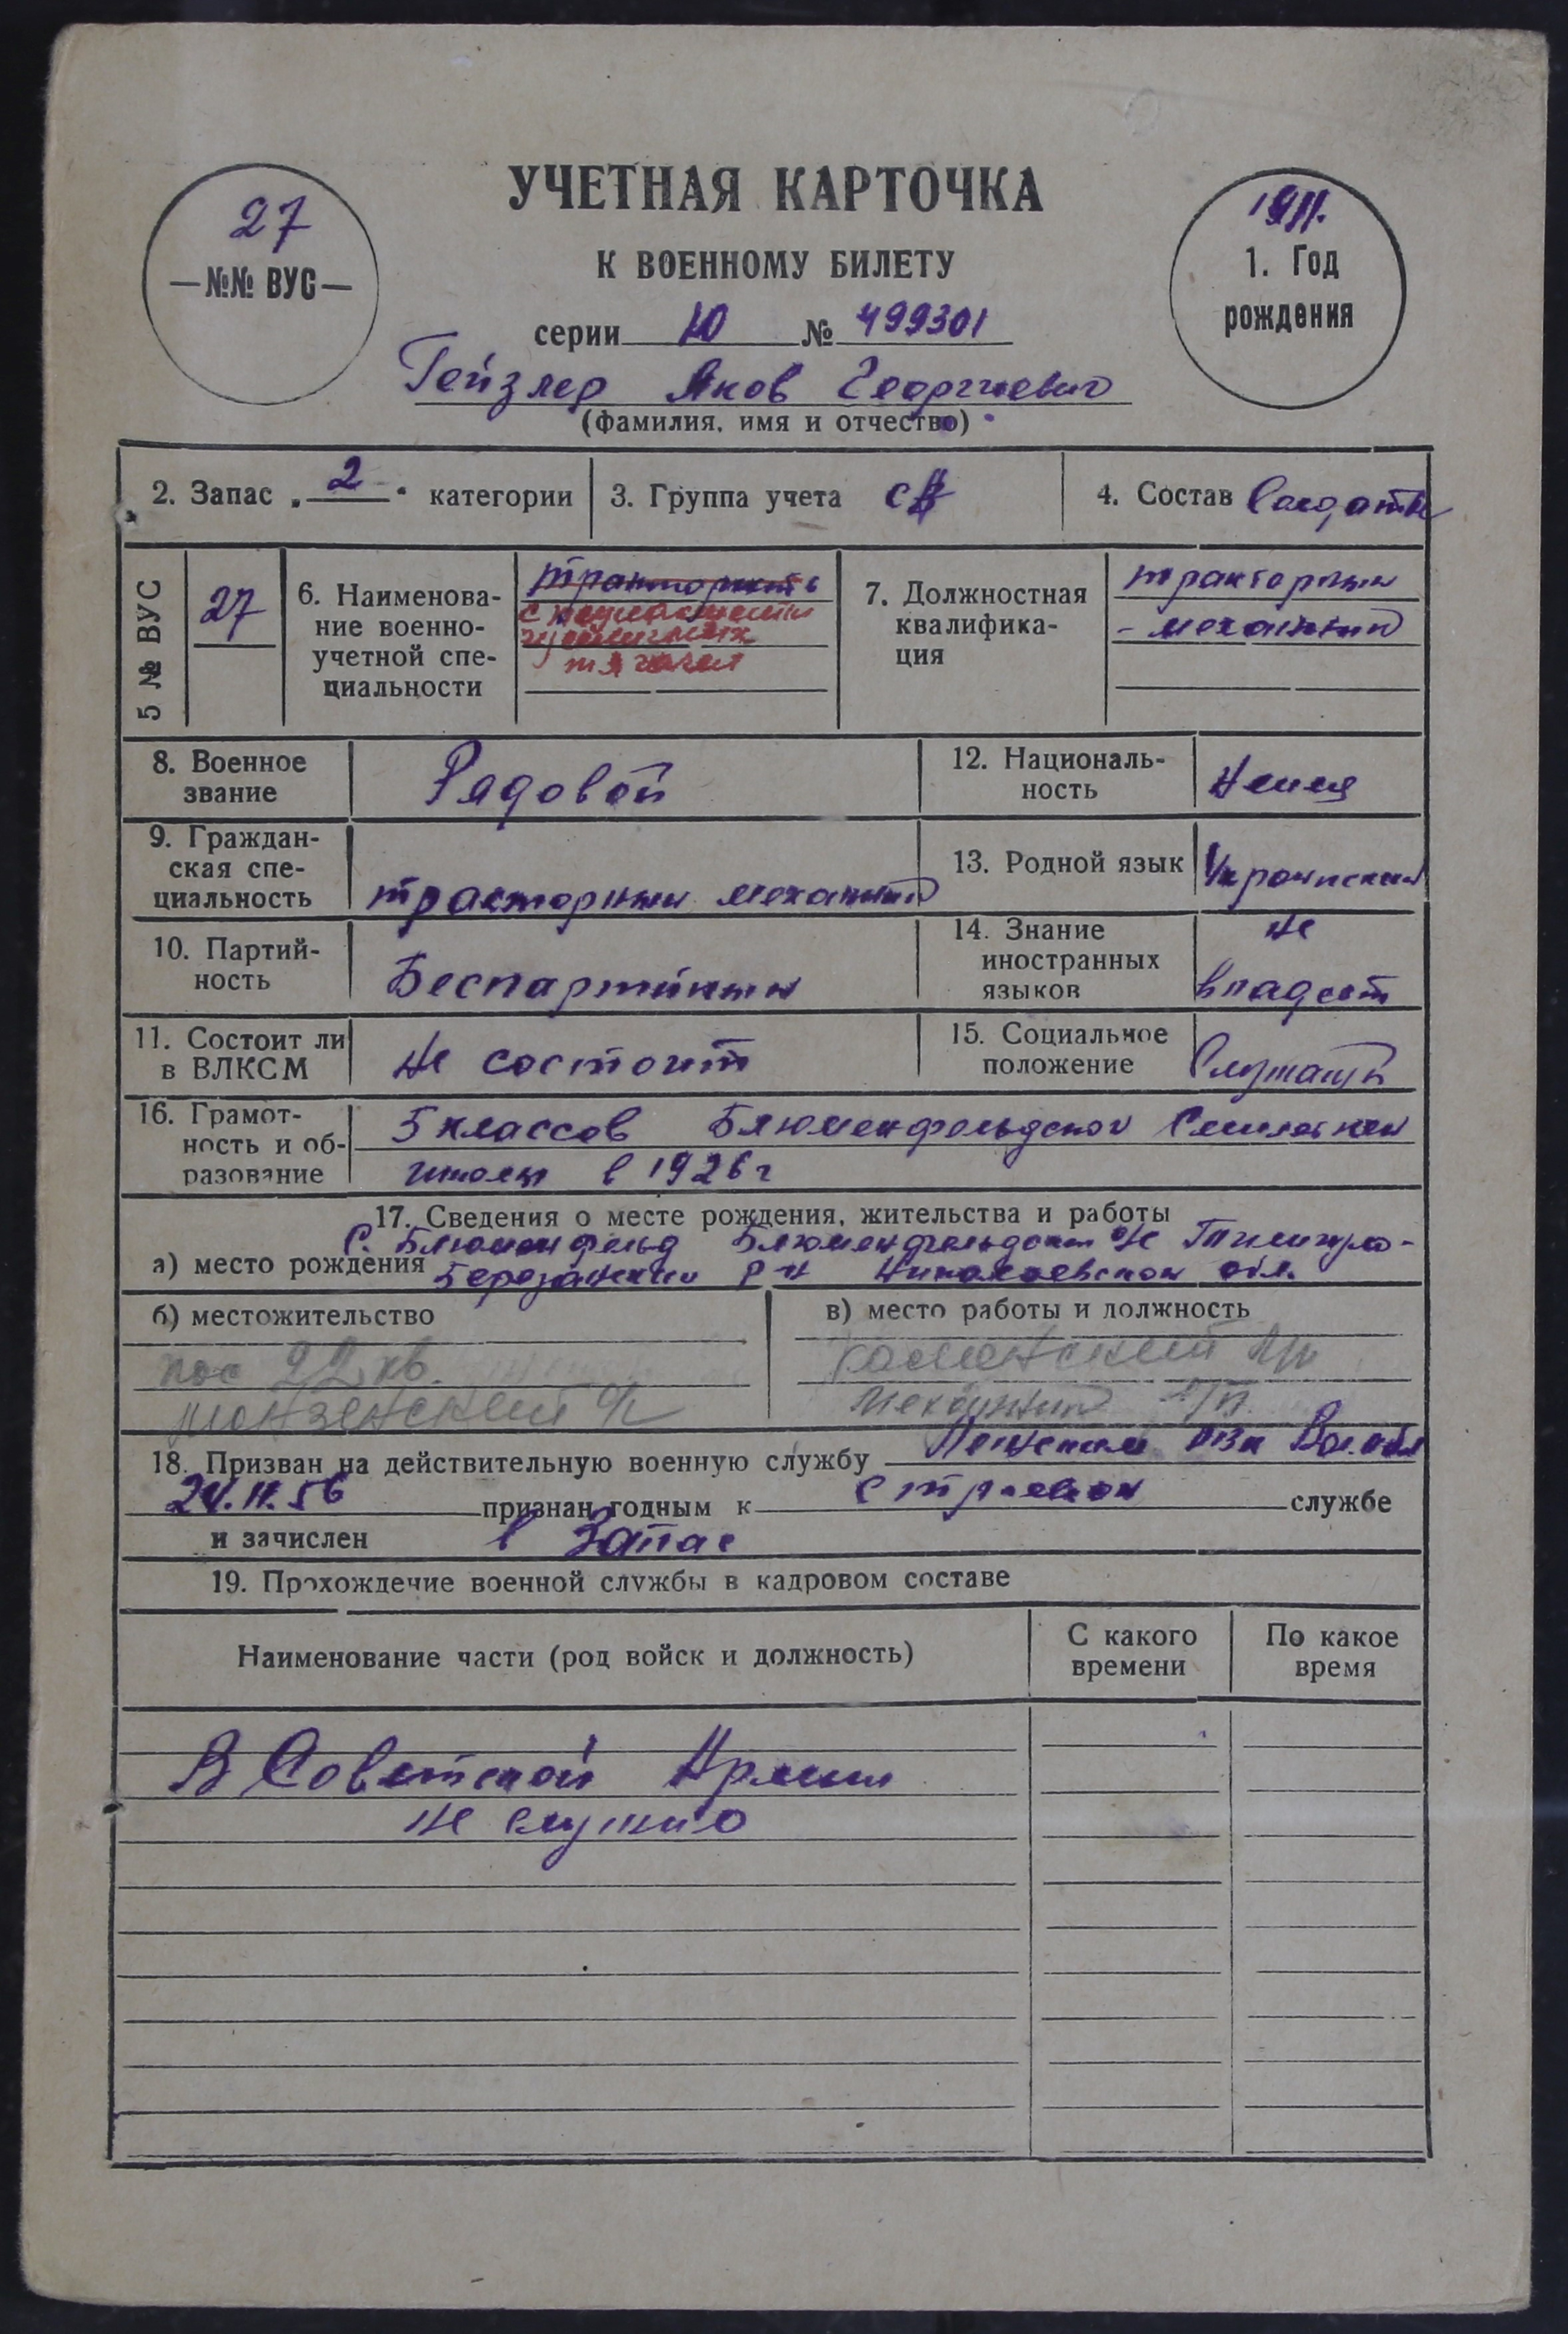 27
—№№ ВУС—
УЧЕТНАЯ КАРТОЧКА
К ВОЕННОМУ БИЛЕТУ
серии Ю № 499301
1911.
1. Год
рождения
Гейзлер Яков Георгиевич
(фамилия, имя и отчество)
2. Запас „ 2 “ категории
3. Группа учета СА
4. Состав Солдаты
5 № ВУС
27
6. Наименова-
ние военно-
учетной спе-
циальности
трактористы
специалисты
гусеничных
тягачей
7. Должностная
квалифика-
ция
тракторный
- механик
8. Военное
звание
Рядовой
12. Националь-
ность
Немец
9. Граждан-
ская спе-
циальность
тракторный механик
13. Родной язык
Украинский
10. Партий-
ность
Беспартийный
14. Знание
иностранных
языков
не
владеет
11. Состоит ли
в ВЛКСМ
не состоит
15. Социальное
положение
Служащий
16. Грамот-
ность и об-
разование
5 классов Блюменфельдской Семилетней
школы в 1926 г
17. Сведения о месте рождения, жительства и работы
а) место рождения
с. Блюменфельд Блюменфельдский с/с Тилигуло-
Березанский р-н Николаевской обл.
б) местожительство
пос 22 кв.
монзенский с/с
в) место работы и должность
механик л/п.
18. Призван на действительную военную службу РВК Вол. обл
24.11.56 признан годным к строевой службе
и зачислен в Запас
19. Прохождение военной службы в кадровом составе
Наименование части (род войск и должность)
С какого
времени
По какое
время
В Советской Армии
не служил